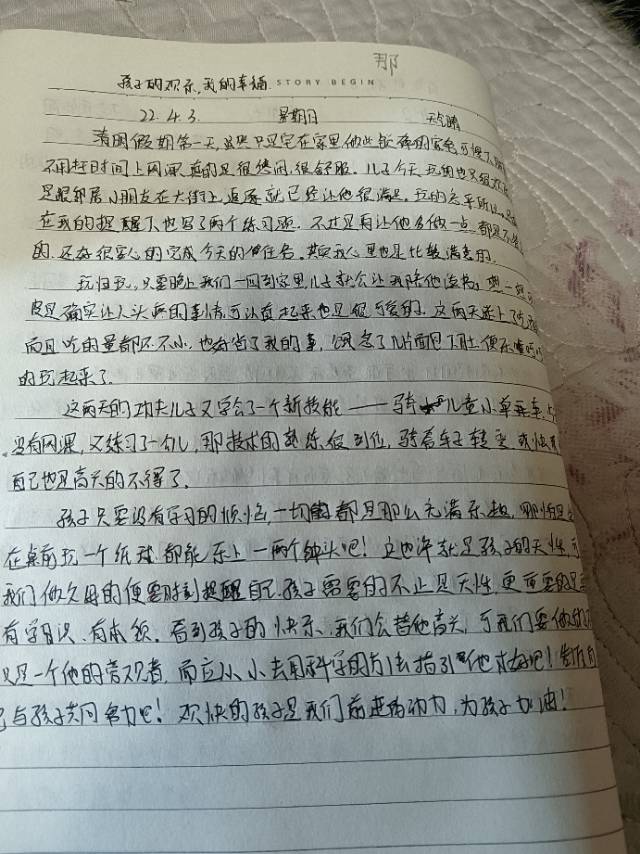 那
孩子的欢乐,我的幸福. STORY BEGIN
22.4.3. 星期日 天气晴
清明假期第一天,虽然只是宅在家里做些 的家务,可
不用赶时间上网课,真的是很悠闲,很舒服。儿子今天玩的也
是跟邻居小朋友在大街上追逐就已经让他很满足。玩的之余
在我的提醒下,也写了两个练习题。不过是再让他多做一点,都是不
的,还好很安心的完成今天的任务。其实我心里也是比较满意的。
玩归玩,只要晚上我们一回到家里,儿子就会让我陪他读书,想一想
皮是确实让人头疼的事情,可认真起来也是很可爱的。这两天
而且吃的量都还不小,也 了我的事,饿急了几片面包下肚,便乐
的玩起来了。
这两天的功夫儿子又学会了一个新技能——骑儿童小单车,
没有网课,又练习了一会儿,那技术的熟练很到位,骑着车子转变
自己也是高兴的不得了。
孩子只要没有学习的烦恼,一切都是那么充满乐趣,哪怕是
在桌前玩一个纸球都能乐上一两个钟头吧!这也许就是孩子的天性,可
我们做父母的便要时刻提醒自己,孩子需要的不止是天性,更重要的是
有学识、有本领。看到孩子的快乐,我们会替他高兴,可我们要做的
只是一个他的旁观者,而应从小去用科学的方法指引他 吧!
己与孩子共同努力吧!欢快的孩子是我们前进的动力,为孩子加油!